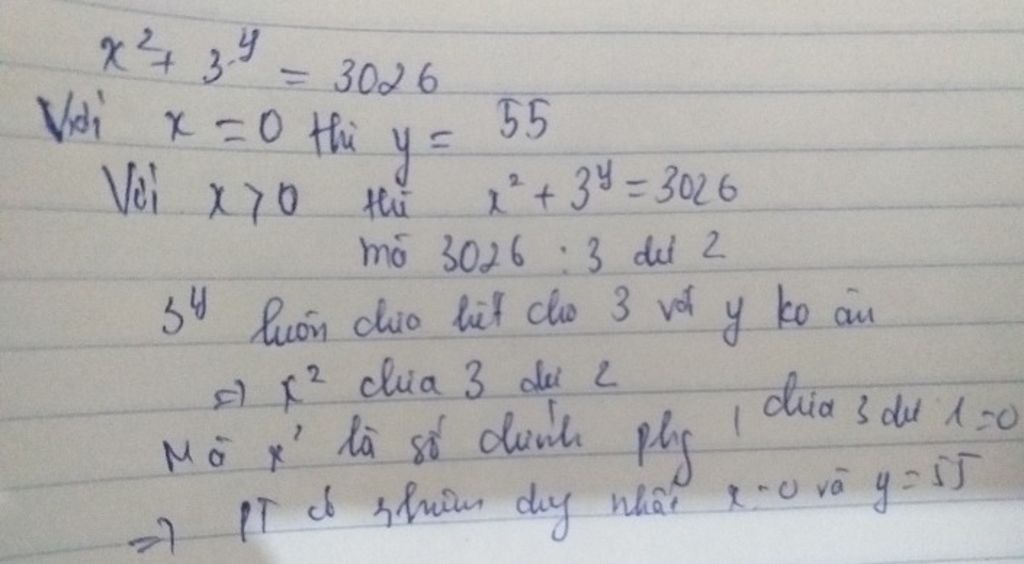 x² + 3^y = 3026
Với x = 0 thì y = 55
Với x > 0 thì x² + 3^y = 3026
mà 3026 : 3 dư 2
3^y luôn chia hết cho 3 với y ko âm
=> x² chia 3 dư 2
Mà x² là số chính phg, chia 3 dư 1 = 0
=> PT có nhiệm duy nhất x = 0 và y = 55